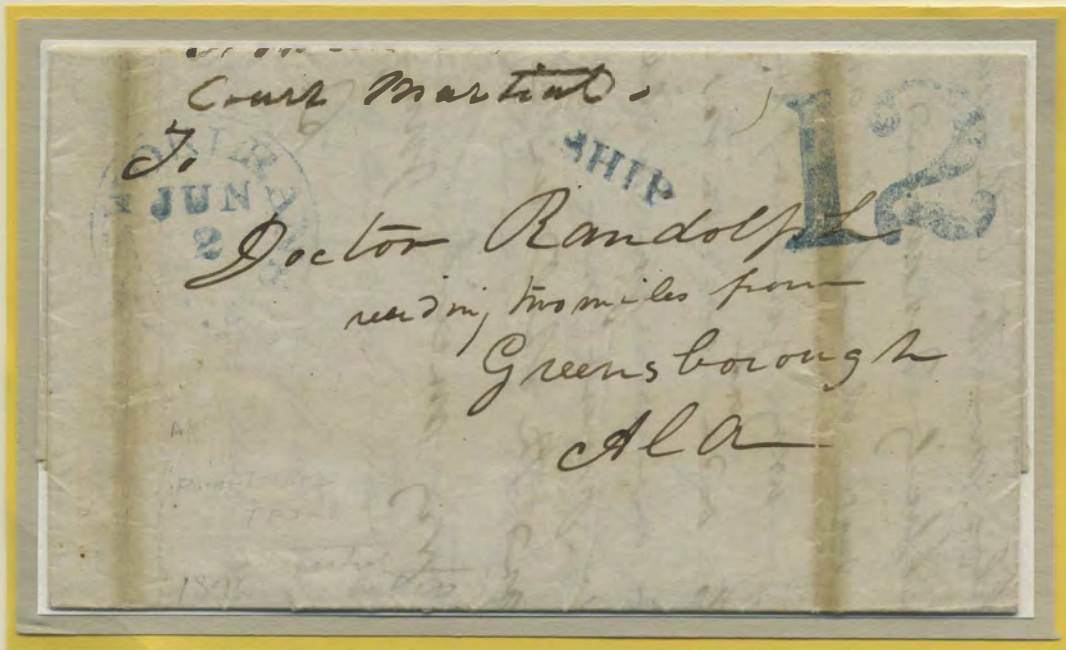 Court Martial.
To
JUN
2
SHIP
12
Doctor Randolph
residing two miles from
Greensborough
Ala